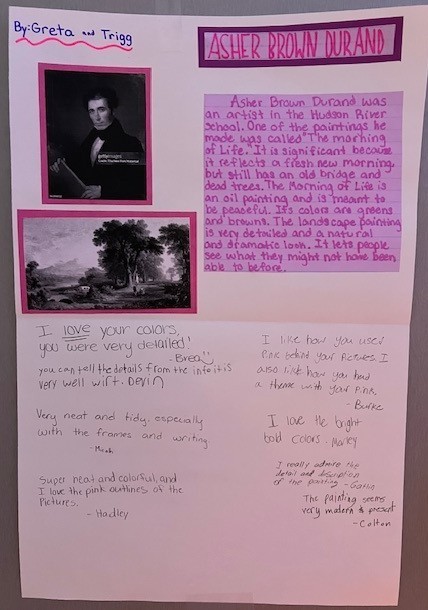 By: Greta and Trigg
ASHER BROWN DURAND
gettyimages
Asher Brown Durand was
an artist in the Hudson River
School. One of the paintings he
made was called "The morning
of Life." It is significant because
it reflects a fresh new morning,
but still has an old bridge and
dead trees. The Morning of Life is
an oil painting and is meant to
be peaceful. It's colors are greens
and browns. The landscape painting
is very detailed and a natural
and dramatic look. It lets people
see what they might not have been
able to before.
I love your colors,
you were very detailed!
- Brea
you can tell the details from the info it is
very well wirt. Devin
Very neat and tidy, especially
with the frames and writing.
Super neat and colorful, and
I love the pink outlines of the
Pictures.
- Hadley
I like how you used
Pink behind your Pictures. I
also like how you had
a theme with your Pink.
- Burke
I love the bright
bold colors - Marley
I really admire the
detail and description
of the painting -
The painting seems
very modern & present
- Colton